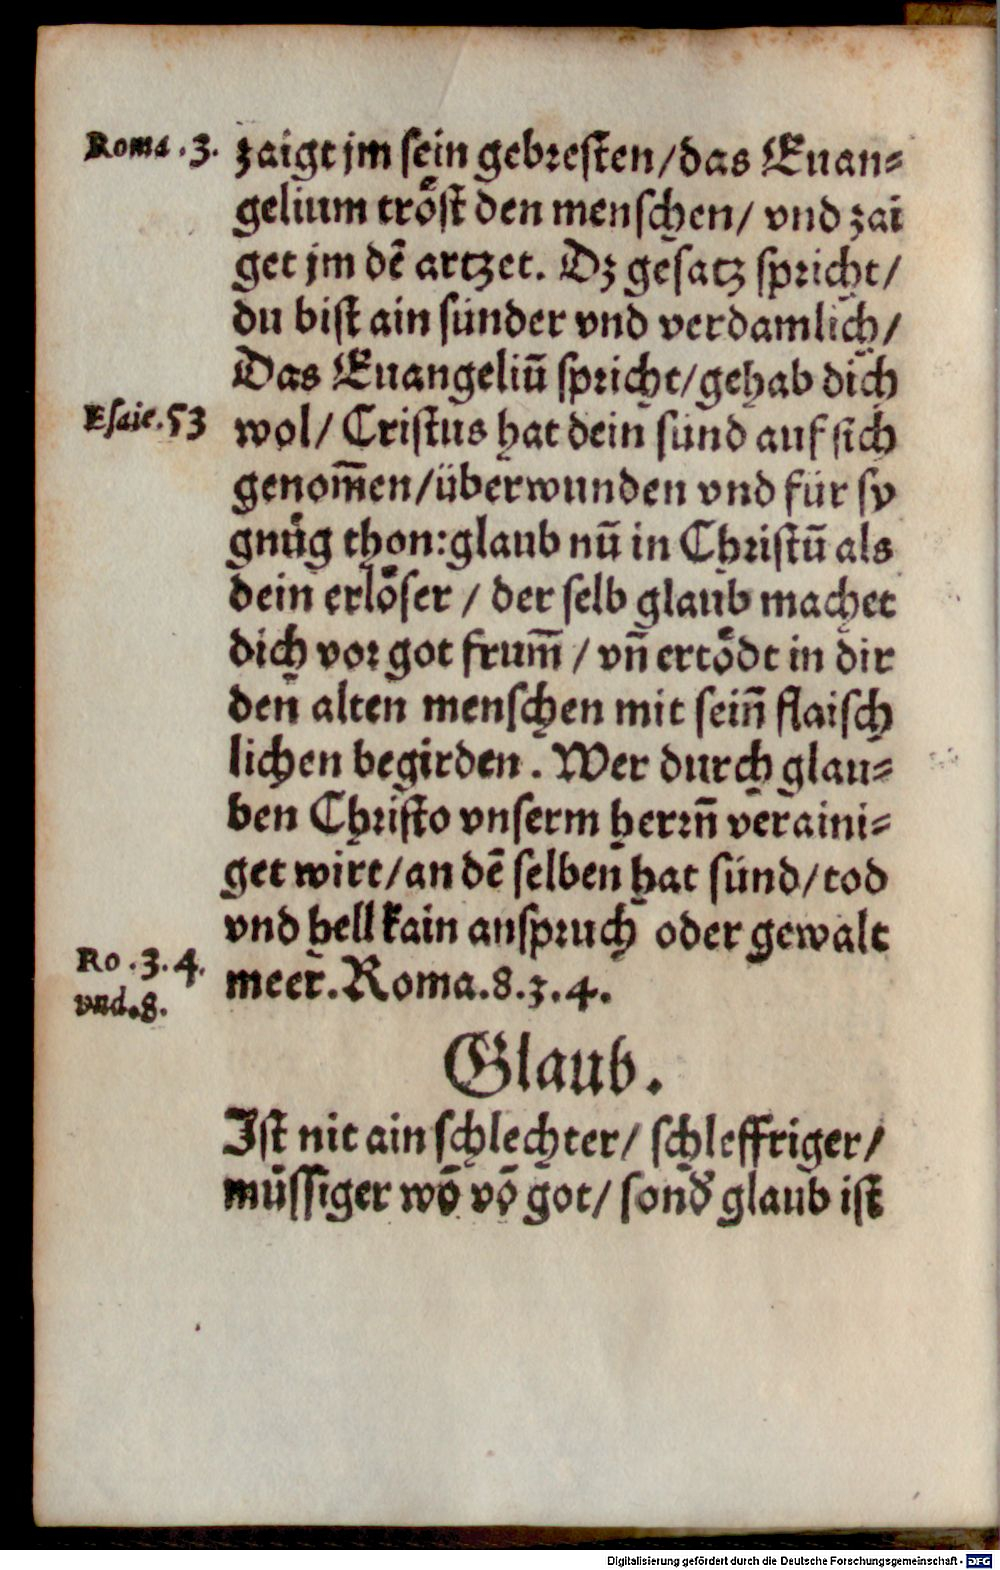 Roma.3. zaigt jm sein gebresten/das Euan⸗
gelium troͤst den menschen/ vnd zai
get jm dē artzet. Dz gesatz spricht/
du bist ain sünder vnd verdamlich/
Das Euangeliū spricht/gehab dich
Esaie.53 wol/ Cristus hat dein sünd auf sich
genom̄en/überwunden vnd für sy
gnuͦg thon:glaub nū in Christū als
dein erloͤser / der selb glaub machet
dich vor got frum̄ / vn̄ ertoͤdt in dir
den alten menschen mit sein̄ flaisch
lichen begirden. Wer durch glau⸗
ben Christo vnserm herrn̄ veraini⸗
get wirt/an dē selben hat sünd/tod
vnd hell kain anspruch oder gewalt
Ro.3.4. meer.Roma.8.3.4.
vnd.8.
Glaub.
Ist nit ain schlechter/ schleffriger/
müssiger wō vō got/ sond̓ glaub ist
Digitalisierung gefördert durch die Deutsche Forschungsgemeinschaft - DFG